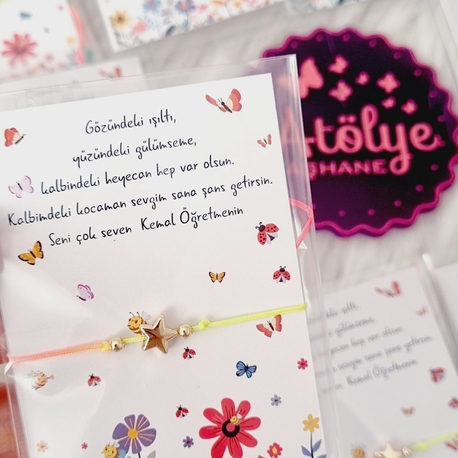 Gözündeki ışıltı,
yüzündeki gülümseme,
kalbindeki heyecan hep var olsun.
Kalbimdeki kocaman sevgim sana şans getirsin.
Seni çok seven Kemal Öğretmenin
tölye
HANE
ışıltı,
gülümseme,
heyecan hep var olsun
sevgim sana şans getirsin.
Kemal Öğretmenin